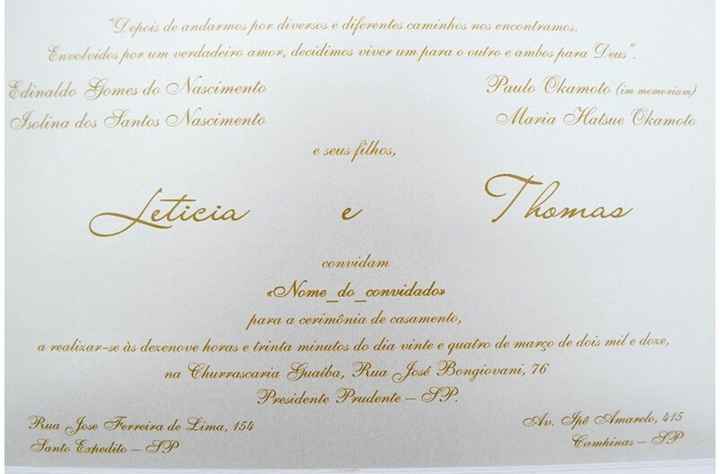 "Depois de andarmos por diversos e diferentes caminhos nos encontramos.
Envolvidos por um verdadeiro amor, decidimos viver um para o outro e ambos para Deus".
Edinaldo Gomes do Nascimento
Isolina dos Santos Nascimento
Paulo Okamoto (in memoriam)
Maria Hatsue Okamoto
e seus filhos,
Leticia e Thomas
convidam
«Nome_do_convidado»
para a cerimônia de casamento,
a realizar-se às dezenove horas e trinta minutos do dia vinte e quatro de março de dois mil e doze,
na Churrascaria Guaíba, Rua José Bongiovani, 76
Presidente Prudente – SP.
Rua Jose Ferreira de Lima, 154
Santo Expedito – SP
Av. Ipê Amarelo, 415
Campinas – SP